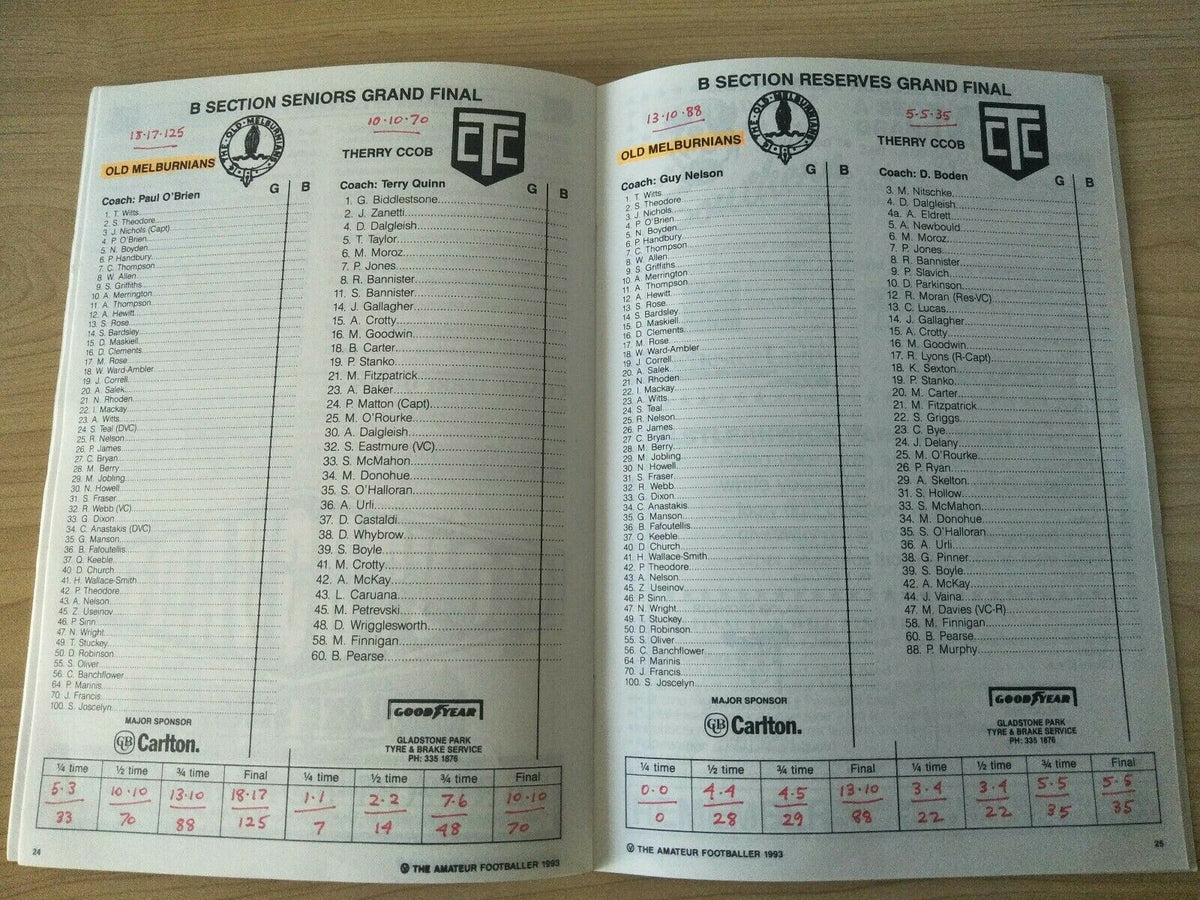 B SECTION SENIORS GRAND FINAL
18·17·125
10·10·70
THE OLD MELBURNIANS
CTC
OLD MELBURNIANS
THERRY CCOB
Coach: Paul O'Brien
G B
Coach: Terry Quinn
G B
1. T. Witts
2. S. Theodore
3. J. Nichols (Capt)
4. P. O'Brien
5. N. Boyden
6. P. Handbury
7. C. Thompson
8. W. Allen
9. S. Griffiths
10. A. Merrington
11. A. Thompson
12. A. Hewitt
13. S. Rose
14. S. Bardsley
15. D. Maskiell
16. D. Clements
17. M. Rose
18. W. Ward-Ambler
19. J. Correll
20. A. Salek
21. N. Rhoden
22. I. Mackay
23. A. Witts
24. S. Teal (DVC)
25. R. Nelson
26. P. James
27. C. Bryan
28. M. Berry
29. M. Jobling
30. N. Howell
31. S. Fraser
32. R. Webb (VC)
33. G. Dixon
34. C. Anastakis (DVC)
35. G. Manson
36. B. Fafoutellis
37. Q. Keeble
40. D. Church
41. H. Wallace-Smith
42. P. Theodore
43. A. Nelson
45. Z. Useinov
46. P. Sinn
47. N. Wright
49. T. Stuckey
50. D. Robinson
55. S. Oliver
56. C. Banchflower
64. P. Marinis
70. J. Francis
100. S. Joscelyn
MAJOR SPONSOR
CUB Carlton.
1. G. Biddlestone
2. J. Zanetti
4. D. Dalgleish
5. T. Taylor
6. M. Moroz
7. P. Jones
8. R. Bannister
11. S. Bannister
14. J. Gallagher
15. A. Crotty
16. M. Goodwin
18. B. Carter
19. P. Stanko
21. M. Fitzpatrick
23. A. Baker
24. P. Matton (Capt)
25. M. O'Rourke
30. A. Dalgleish
32. S. Eastmure (VC)
33. S. McMahon
34. M. Donohue
35. S. O'Halloran
36. A. Urli
37. D. Castaldi
38. D. Whybrow
39. S. Boyle
41. M. Crotty
42. A. McKay
43. L. Caruana
45. M. Petrevski
48. D. Wrigglesworth
58. M. Finnigan
60. B. Pearse
GOODYEAR
GLADSTONE PARK
TYRE & BRAKE SERVICE
PH: 335 1876
¼ time ½ time ¾ time Final ¼ time ½ time ¾ time Final
5·3 10·10 13·10 18·17 1·1 2·2 7·6 10·10
33 70 88 125 7 14 48 70
24
THE AMATEUR FOOTBALLER 1993
B SECTION RESERVES GRAND FINAL
13·10·88
5·5·35
THE OLD MELBURNIANS
CTC
OLD MELBURNIANS
THERRY CCOB
Coach: Guy Nelson
G B
Coach: D. Boden
G B
1. T. Witts
2. S. Theodore
3. J. Nichols
4. P. O'Brien
5. N. Boyden
6. P. Handbury
7. C. Thompson
8. W. Allen
9. S. Griffiths
10. A. Merrington
11. A. Thompson
12. A. Hewitt
13. S. Rose
14. S. Bardsley
15. D. Maskiell
16. D. Clements
17. M. Rose
18. W. Ward-Ambler
19. J. Correll
20. A. Salek
21. N. Rhoden
22. I. Mackay
23. A. Witts
24. S. Teal
25. R. Nelson
26. P. James
27. C. Bryan
28. M. Berry
29. M. Jobling
30. N. Howell
31. S. Fraser
32. R. Webb
33. G. Dixon
34. C. Anastakis
35. G. Manson
36. B. Fafoutellis
37. Q. Keeble
40. D. Church
41. H. Wallace-Smith
42. P. Theodore
43. A. Nelson
45. Z. Useinov
46. P. Sinn
47. N. Wright
49. T. Stuckey
50. D. Robinson
55. S. Oliver
56. C. Banchflower
64. P. Marinis
70. J. Francis
100. S. Joscelyn
MAJOR SPONSOR
CUB Carlton.
3. M. Nitschke
4. D. Dalgleish
4a. A. Eldrett
5. A. Newbould
6. M. Moroz
7. P. Jones
8. R. Bannister
9. P. Slavich
10. D. Parkinson
12. R. Moran (Res-VC)
13. C. Lucas
14. J. Gallagher
15. A. Crotty
16. M. Goodwin
17. R. Lyons (R-Capt)
18. K. Sexton
19. P. Stanko
20. M. Carter
21. M. Fitzpatrick
22. S. Griggs
23. C. Bye
24. J. Delany
25. M. O'Rourke
26. P. Ryan
29. A. Skelton
31. S. Hollow
33. S. McMahon
34. M. Donohue
35. S. O'Halloran
36. A. Urli
38. G. Pinner
39. S. Boyle
42. A. McKay
44. J. Vaina
47. M. Davies (VC-R)
58. M. Finnigan
60. B. Pearse
88. P. Murphy
GOODYEAR
GLADSTONE PARK
TYRE & BRAKE SERVICE
PH: 335 1876
¼ time ½ time ¾ time Final ¼ time ½ time ¾ time Final
0·0 4·4 4·5 13·10 3·4 3·4 5·5 5·5
0 28 29 88 22 22 35 35
THE AMATEUR FOOTBALLER 1993
25